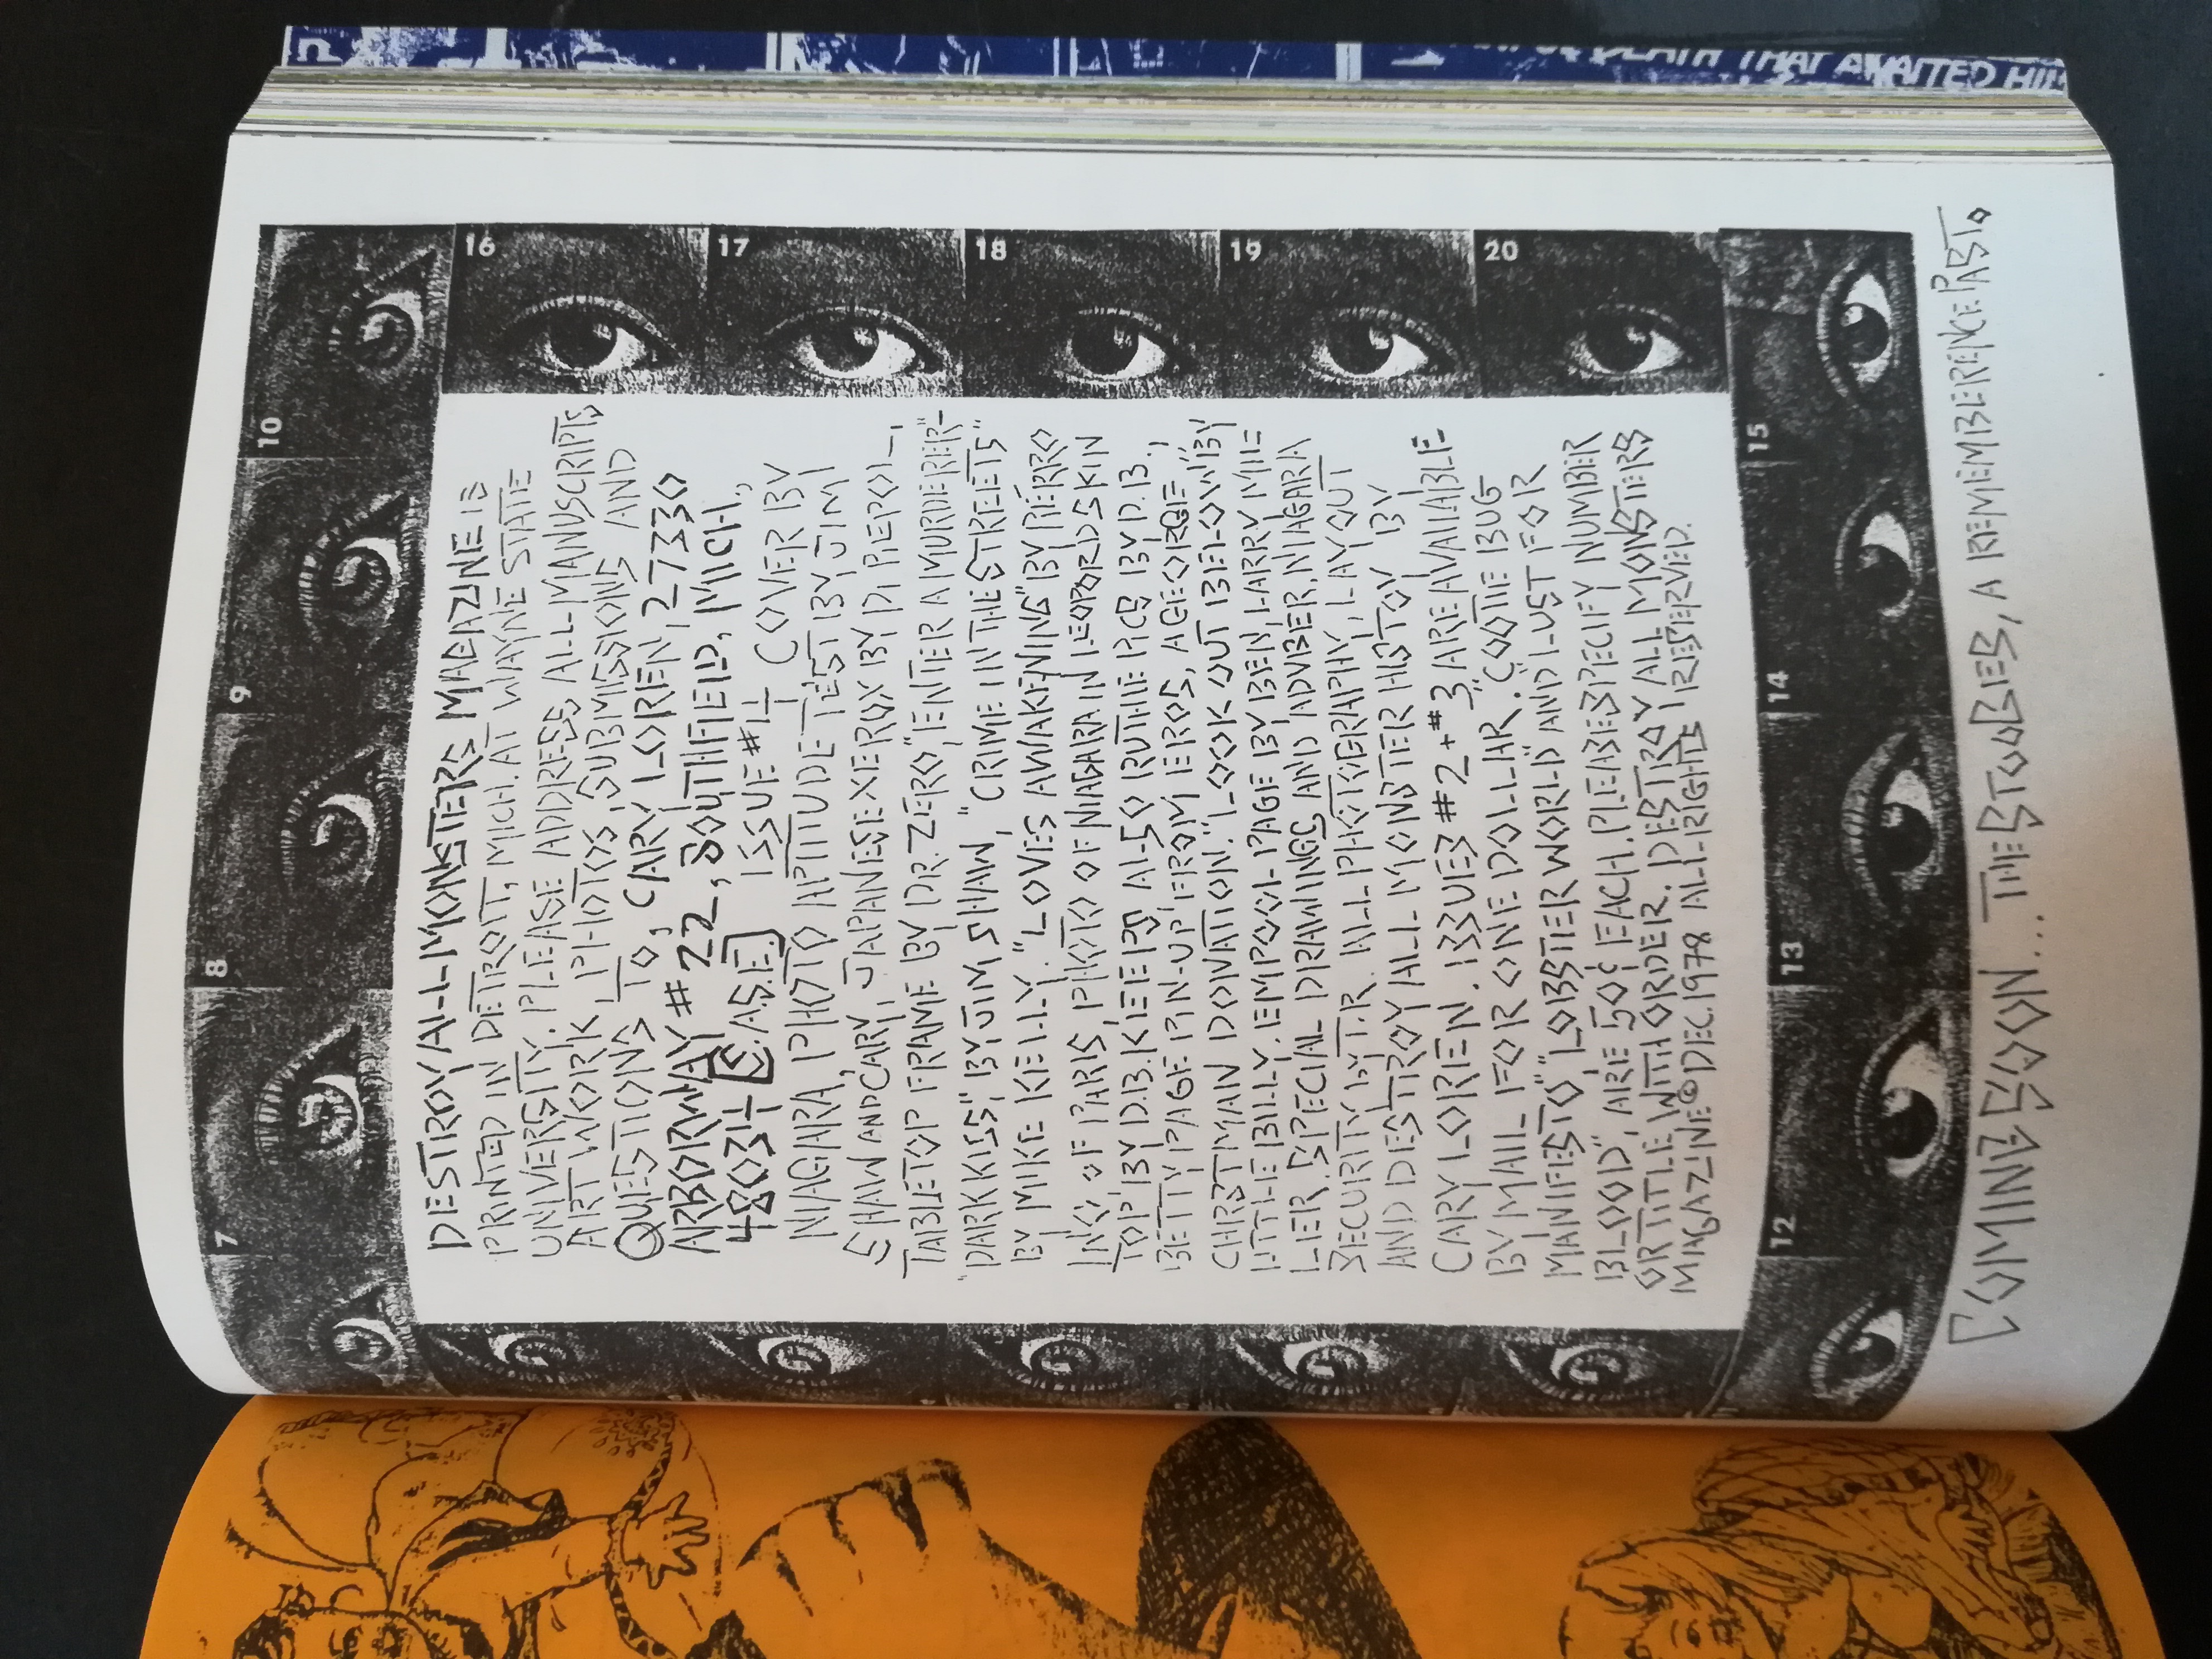 DESTROY ALL MONSTERS MAGAZINE IS
PRINTED IN DETROIT, MICH. AT WAYNE STATE
UNIVERSITY. PLEASE ADDRESS ALL MANUSCRIPTS
ARTWORK, PHOTOS, SUBMISSIONS AND
QUESTIONS TO, CARY LOREN, 27330
ARBORWAY #22, SOUTHFIELD, MICH.,
48034 S.A.S.E. ISSUE #4 COVER BY
NIAGARA, PHOTO APTITUDE TEST BY JIM
SHAW AND CARY, JAPANESE XEROX BY DI PIEPOL,
TABLETOP FRAME BY DR. ZERO, "ENTER A MURDERER"-
"DARK KISS", BY JIM SHAW, "CRIME IN THE STREETS"
BY MIKE KELLY. "LOVES AWAKENING" BY PIERRO
INC/O OF PARIS, PHOTO OF NIAGARA IN LEOPORDSKIN
TOP BY D.B. KEEPS ALSO RUTHIE PICS BY P. 13,
BETTY PAGE PIN-UP FROM EROS, AGEORGE
CHRISTMAN DONATION. "LOOK OUT BELOW" BY
LITTLE BILLY. EMPOOL PAGE BY BEN, LARRY MIL-
LER. SPECIAL DRAWINGS AND ADVISER, NIAGARA
SECURITY BY T.R. ALL PHOTOGRAPHY, LAYOUT
AND DESTROY ALL MONSTER HISTOY BY
CARY LOREN. ISSUES #2 + #3 ARE AVAILABLE
BY MAIL FOR ONE DOLLAR. COOTIE BUG
MANIFESTO "LOBSTER WORLD" AND LUST FOR
BLOOD", ARE 50¢ EACH. PLEASE SPECIFY NUMBER
OR TITLE WITH ORDER. DESTROY ALL MONSTERS
MAGAZINE © DEC. 1978 ALL RIGHTS RESERVED.
COMING SOON... THE STOOGES, A REMEMBERENCE PART.
7
8
9
10
16
17
18
19
20
12
13
14
15
DEATH THAT AWAITED HIM